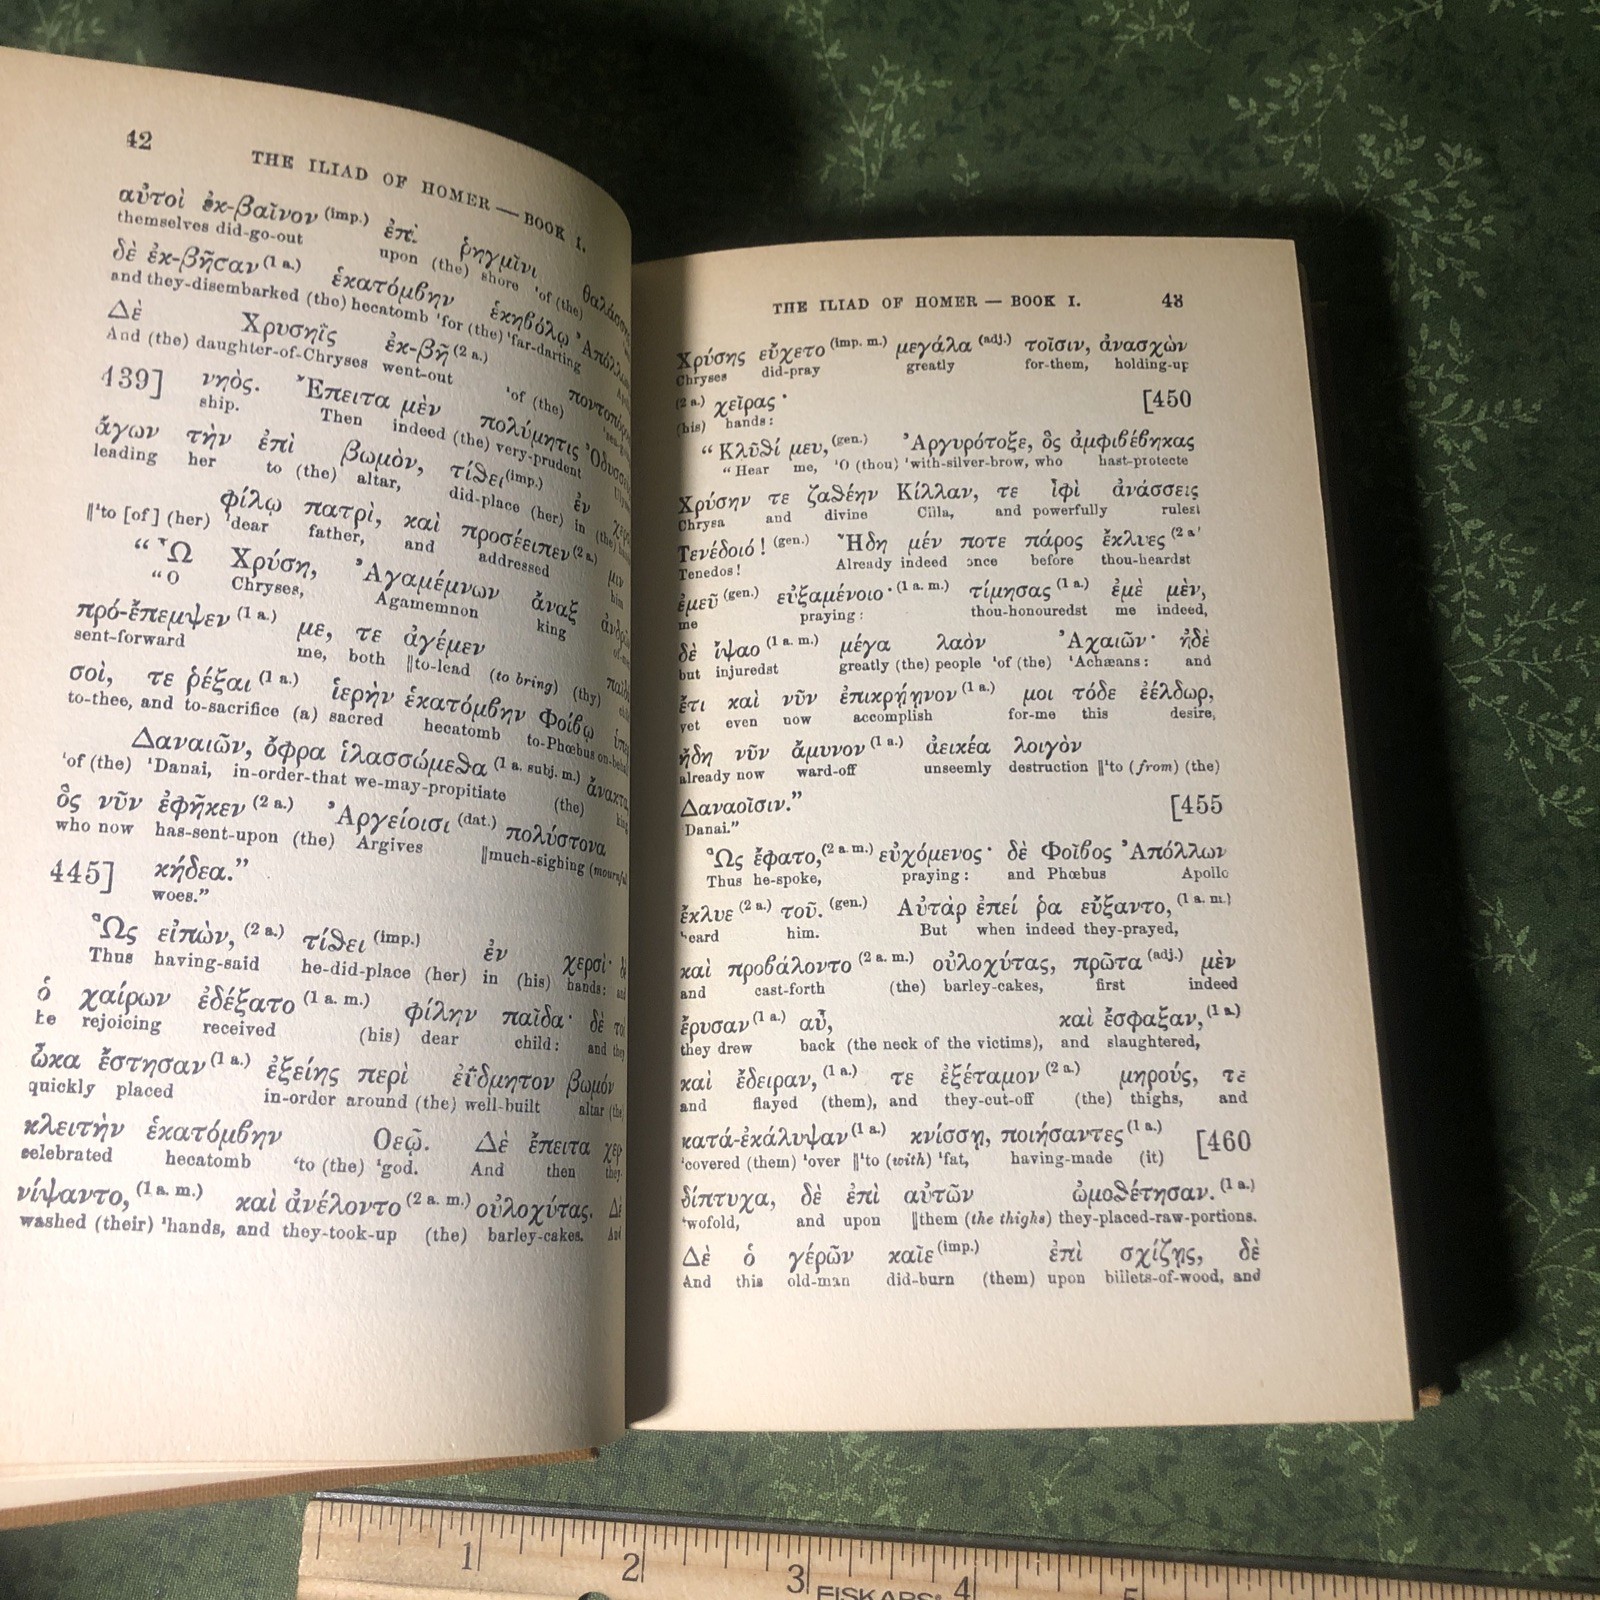 42
THE ILIAD OF HOMER — BOOK I.
αὐτοὶ ἐκ-βαῖνον (imp.) ἐπὶ ῥηγμῖνι
themselves did-go-out upon (the) shore 'of (the)
δὲ ἐκ-βῆσαν (1 a.) ἑκατόμβην ἑκηβόλῳ
and they-disembarked (the) hecatomb 'for (the) 'far-darting
Δὲ Χρυσηῒς ἐκ-βῆ (2 a.) ποντοπόρο
And (the) daughter-of-Chryses went-out 'of (the)
439] νηὸς. Ἔπειτα μὲν πολύμητις
ship. Then indeed (the) very-prudent
ἄγων τὴν ἐπὶ βωμὸν, τίθει (imp.) ἐν
leading her to (the) altar, did-place (her) in (the)
φίλῳ πατρὶ, καὶ προσέειπεν (2 a.) μιν
‖'to [of] (her) 'dear father, and addressed him
“ Ὦ Χρύση, Ἀγαμέμνων ἄναξ
“ O Chryses, Agamemnon king
πρό-ἔπεμψεν (1 a.) με, τε ἀγέμεν
sent-forward me, both ‖to-lead (to bring) (thy)
σοὶ, τε ῥέξαι (1 a.) ἱερὴν ἑκατόμβην Φοίβῳ
to-thee, and to-sacrifice (a) sacred hecatomb to-Phœbus
Δαναιῶν, ὄφρα ἱλασσώμεθα (1 a. subj. m.) ἄνακτα,
'of (the) 'Danai, in-order-that we-may-propitiate (the) king
ὃς νῦν ἐφῆκεν (2 a.) Ἀργείοισι (dat.) πολύστονα
who now has-sent-upon (the) Argives ‖much-sighing (mournful
445] κήδεα.”
woes.”
Ὣς εἰπὼν, (2 a.) τίθει (imp.) ἐν χερσί·
Thus having-said he-did-place (her) in (his) hands: and
ὁ χαίρων ἐδέξατο (1 a. m.) φίλην παῖδα· δὲ τοὶ
he rejoicing received (his) dear child: and they
ὦκα ἔστησαν (1 a.) ἑξείης περὶ ἐΰδμητον βωμόν
quickly placed in-order around (the) well-built altar (the
κλειτὴν ἑκατόμβην Θεῷ. Δὲ ἔπειτα χερ
celebrated hecatomb 'to (the) 'god. And then they-
νίψαντο, (1 a. m.) καὶ ἀνέλοντο (2 a. m.) οὐλοχύτας. Δὲ
washed (their) 'hands, and they-took-up (the) barley-cakes. And
THE ILIAD OF HOMER — BOOK I. 43
Χρύσης εὔχετο (imp. m.) μεγάλα (adj.) τοῖσιν, ἀνασχὼν
Chryses did-pray greatly for-them, holding-up
(2 a.) χεῖρας· [450
(his) hands:
“ Κλῦθί μευ, (gen.) Ἀργυρότοξε, ὃς ἀμφιβέβηκας
“ Hear me, 'O (thou) 'with-silver-brow, who hast-protecte
Χρύσην τε ζαθέην Κίλλαν, τε ἶφὶ ἀνάσσεις
Chrysa and divine Cilla, and powerfully rulest
Τενέδοιό! (gen.) Ἤδη μέν ποτε πάρος ἔκλυες (2 a
Tenedos! Already indeed once before thou-heardst
ἐμεῦ (gen.) εὐξαμένοιο· (1 a. m.) τίμησας (1 a.) ἐμὲ μὲν,
me praying: thou-honouredst me indeed,
δὲ ἴψαο (1 a. m.) μέγα λαὸν Ἀχαιῶν· ἠδὲ
but injuredst greatly (the) people 'of (the) 'Achæans: and
ἔτι καὶ νῦν ἐπικρήηνον (1 a.) μοι τόδε ἐέλδωρ,
yet even now accomplish for-me this desire,
ἤδη νῦν ἄμυνον (1 a.) ἀεικέα λοιγὸν
already now ward-off unseemly destruction ‖'to (from) (the)
Δαναοῖσιν.” [455
'Danai.”
Ὣς ἔφατο, (2 a. m.) εὐχόμενος· δὲ Φοῖβος Ἀπόλλων
Thus he-spoke, praying: and Phœbus Apollo
ἔκλυε (2 a.) τοῦ. (gen.) Αὐτὰρ ἐπεί ῥα εὔξαντο, (1 a. m.)
heard him. But when indeed they-prayed,
καὶ προβάλοντο (2 a. m.) οὐλοχύτας, πρῶτα (adj.) μὲν
and cast-forth (the) barley-cakes, first indeed
ἔρυσαν (1 a.) αὖ, καὶ ἔσφαξαν, (1 a.)
they drew back (the neck of the victims), and slaughtered,
καὶ ἔδειραν, (1 a.) τε ἐξέταμον (2 a.) μηροὺς, τε
and flayed (them), and they-cut-off (the) thighs, and
κατά-ἐκάλυψαν (1 a.) κνίσσῃ, ποιήσαντες (1 a.) [460
'covered (them) 'over ‖'to (with) 'fat, having-made (it)
δίπτυχα, δὲ ἐπὶ αὐτῶν ὠμοθέτησαν. (1 a.)
'wofold, and upon ‖them (the thighs) they-placed-raw-portions.
Δὲ ὁ γέρῶν καῖε (imp.) ἐπὶ σχίζῃς, δὲ
And this old-man did-burn (them) upon billets-of-wood, and
1 2 3 FISKARS 4 5